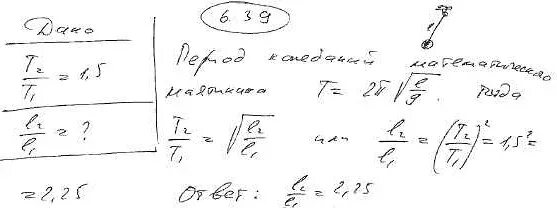 6.39
Дано
T₂/T₁ = 1,5
l₂/l₁ = ?
l
Период колебаний математического
маятника T = 2π√(l/g). Тогда
T₂/T₁ = √(l₂/l₁) или l₂/l₁ = (T₂/T₁)² = 1,5² =
= 2,25 Ответ: l₂/l₁ = 2,25